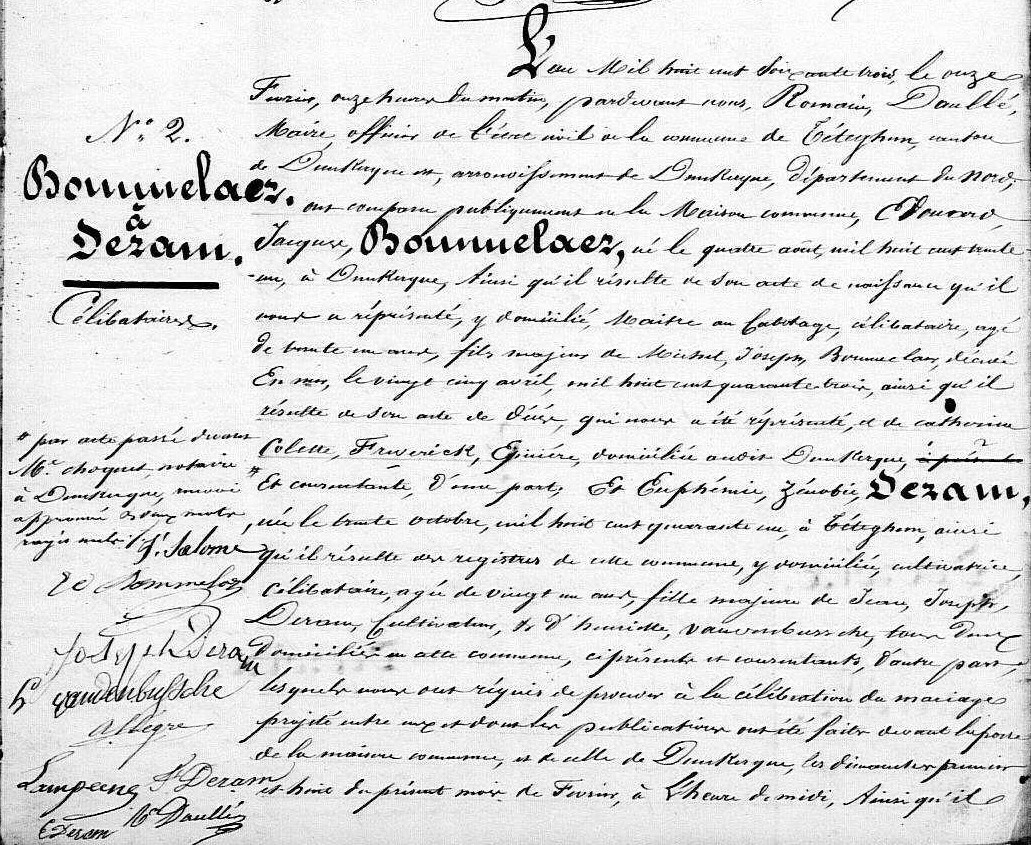 L'an Mil huit cent soixante trois, le onze
Février, onze heures du matin, pardevant nous, Romain, Daullé,
Maire officier de l'état civil de la commune de Téteghem, canton
de Dunkerque est, arrondissement de Dunkerque, département du Nord,
ont comparu publiquement en la Maison commune, Edouard,
Jacques, Bommelaer, né le quatre août, mil huit cent trente
un, à Dunkerque, Ainsi qu'il résulte de son acte de naissance qu'il
nous a réprésenté, y domicilié, Maitre au Cabotage, célibataire, agé
de trente un ans, fils majeur de Michel, Joseph, Bommelaer, décédé
En mer, le vingt cinq avril, mil huit cent quarante trois, ainsi qu'il
résulte de son acte de décès, qui nous a été réprésenté, et de catherine
Colette, Frederick, Epicière, domiciliée audit Dunkerque,
Et consentante, d'une part, Et Euphémie, Zénobie, Deram,
née le trente octobre, mil huit cent quarante un, à Téteghem, ainsi
qu'il résulte des registres de cette commune, y domiciliée, cultivatrice,
célibataire, agée de vingt un ans, fille majeure de Jean, Joseph,
Deram, Cultivateur, & d'henriette, vandenbussche, tous deux
domiciliés en cette commune, ci présents et consentants, d'autre part,
lesquels nous ont réquis de proceder à la célébration du mariage
projeté entre eux et dont les publications ont été faites devant la porte
de la maison commune, et de celle de Dunkerque, les dimanches premier
et huit du présent mois de Février, à l'heure de midi, Ainsi qu'il
N.° 2.
Bommelaer.
à
Deram.
Célibataires.
* par acte passé devant
M.e choquet, notaire
à Dunkerque,
approuvé deux mots
rayés nuls /. J. Salomé
Ed Bommelaer
Joseph Deram
h vandenbussche
Allegre
Lampaene F Deram
E Deram R. Daullé